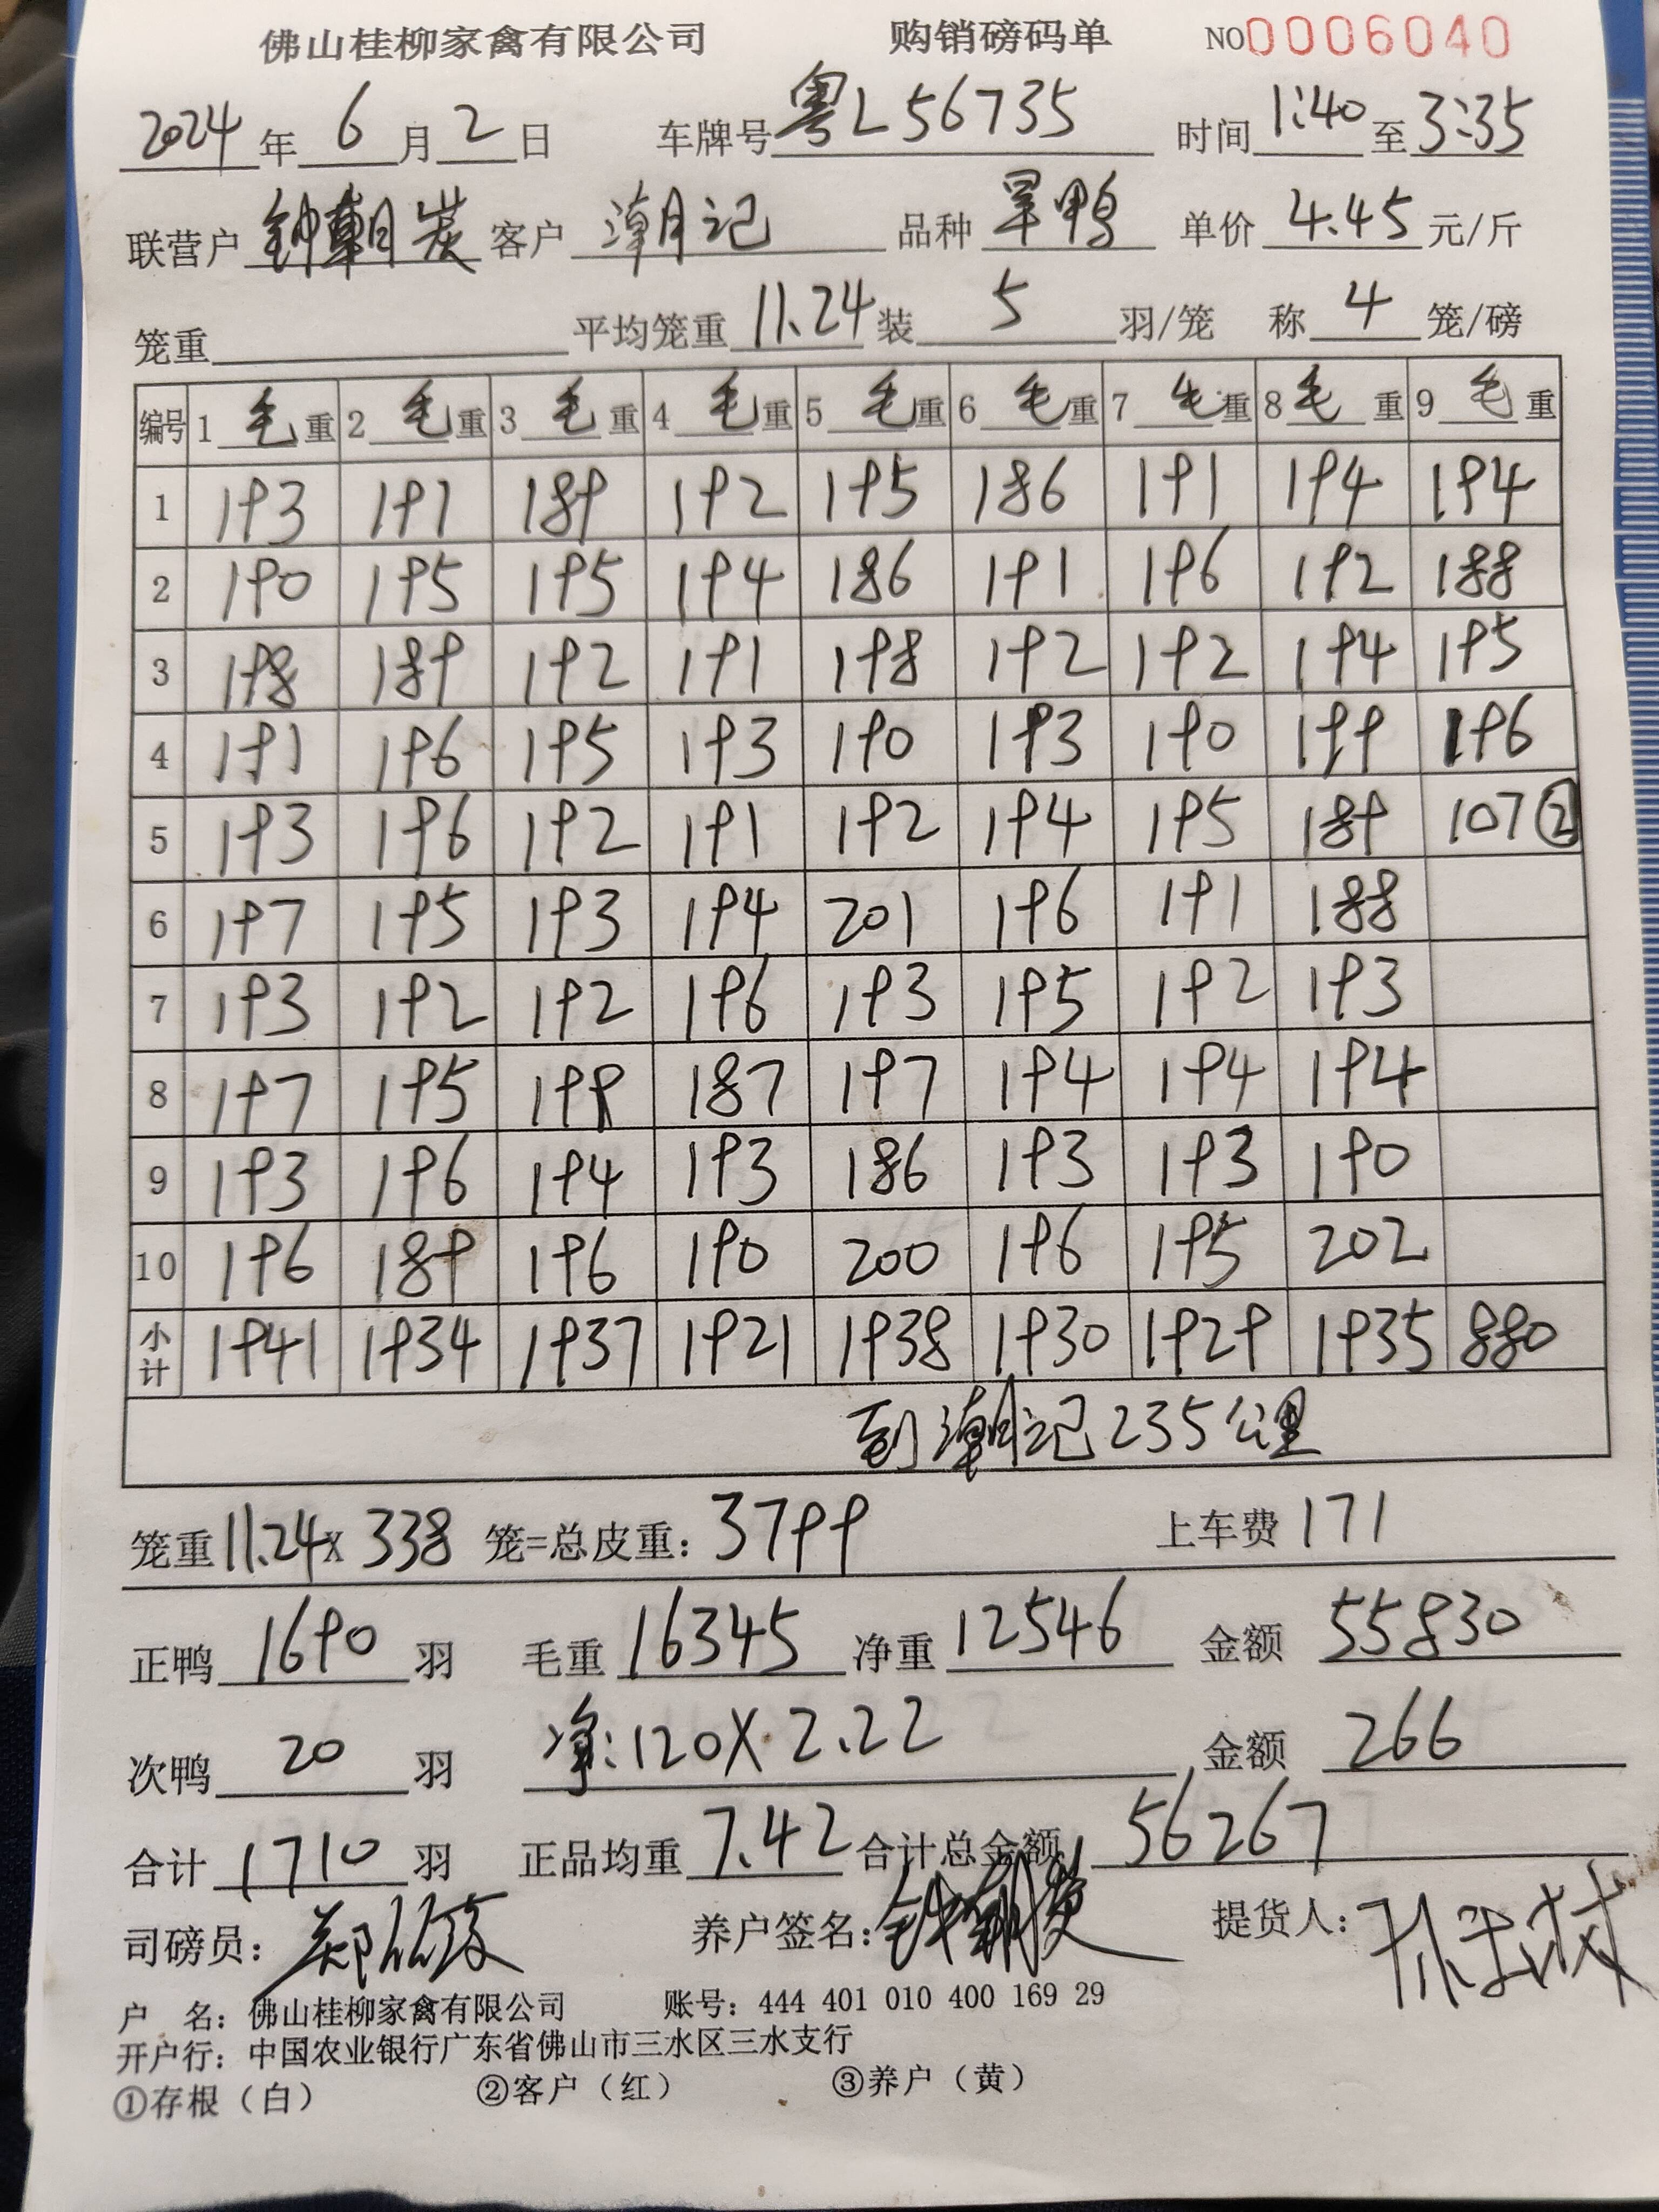 佛山桂柳家禽有限公司 购销磅码单 NO0006040
2024年6月2日 车牌号粤L56735 时间1:40至3:35
联营户钟朝炭 客户 潮记 品种 旱鸭 单价 4.45 元/斤
笼重 平均笼重 11.24 装 5 羽/笼 称 4 笼/磅
编号 1毛重 2毛重 3毛重 4毛重 5毛重 6毛重 7毛重 8毛重 9毛重
1 193 191 189 192 195 186 191 194 194
2 190 195 195 194 186 191 196 192 188
3 198 189 192 191 198 192 192 194 195
4 191 196 195 193 190 193 190 199 196
5 193 196 192 191 192 194 195 189 107②
6 197 195 193 194 201 196 191 188
7 193 192 192 196 193 195 192 193
8 197 195 199 187 197 194 194 194
9 193 196 194 193 186 193 193 190
10 196 189 196 190 200 196 195 202
小计 1941 1934 1937 1921 1938 1930 1929 1935 880
到潮记235公里
笼重11.24X 338 笼=总皮重: 3799 上车费 171
正鸭 1690 羽 毛重 16345 净重 12546 金额 55830
次鸭 20 羽 净:120X2.22 金额 266
合计 1710 羽 正品均重 7.42 合计总金额 56267
司磅员: 郑 养户签名: 钟朝 提货人: 孙
户 名: 佛山桂柳家禽有限公司 账号: 444 401 010 400 169 29
开户行: 中国农业银行广东省佛山市三水区三水支行
①存根（白） ②客户（红） ③养户（黄）